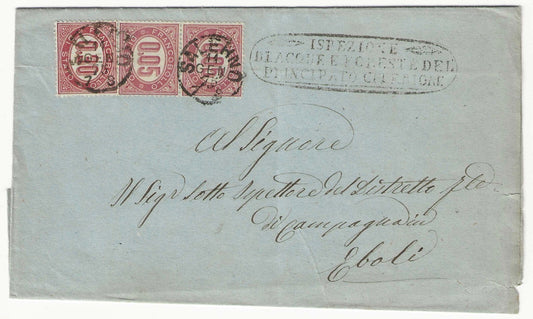 0.05
ISPEZIONE
DI ACQUE E FORESTE DEL
PRINCIPATO CITERIORE
Al Signore
Il Sigr Sotto Ispettore del Distretto
di Campagna in
Eboli